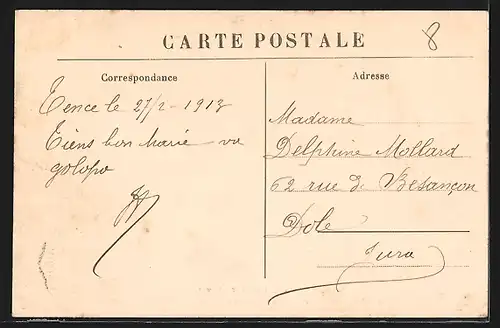 CARTE POSTALE
8
Correspondance
Tence le 27/2 - 1913
Tiens bon Marie - va
golopo
Adresse
Madame
Delphine Mollard
62 rue de Besançon
Dole
Jura